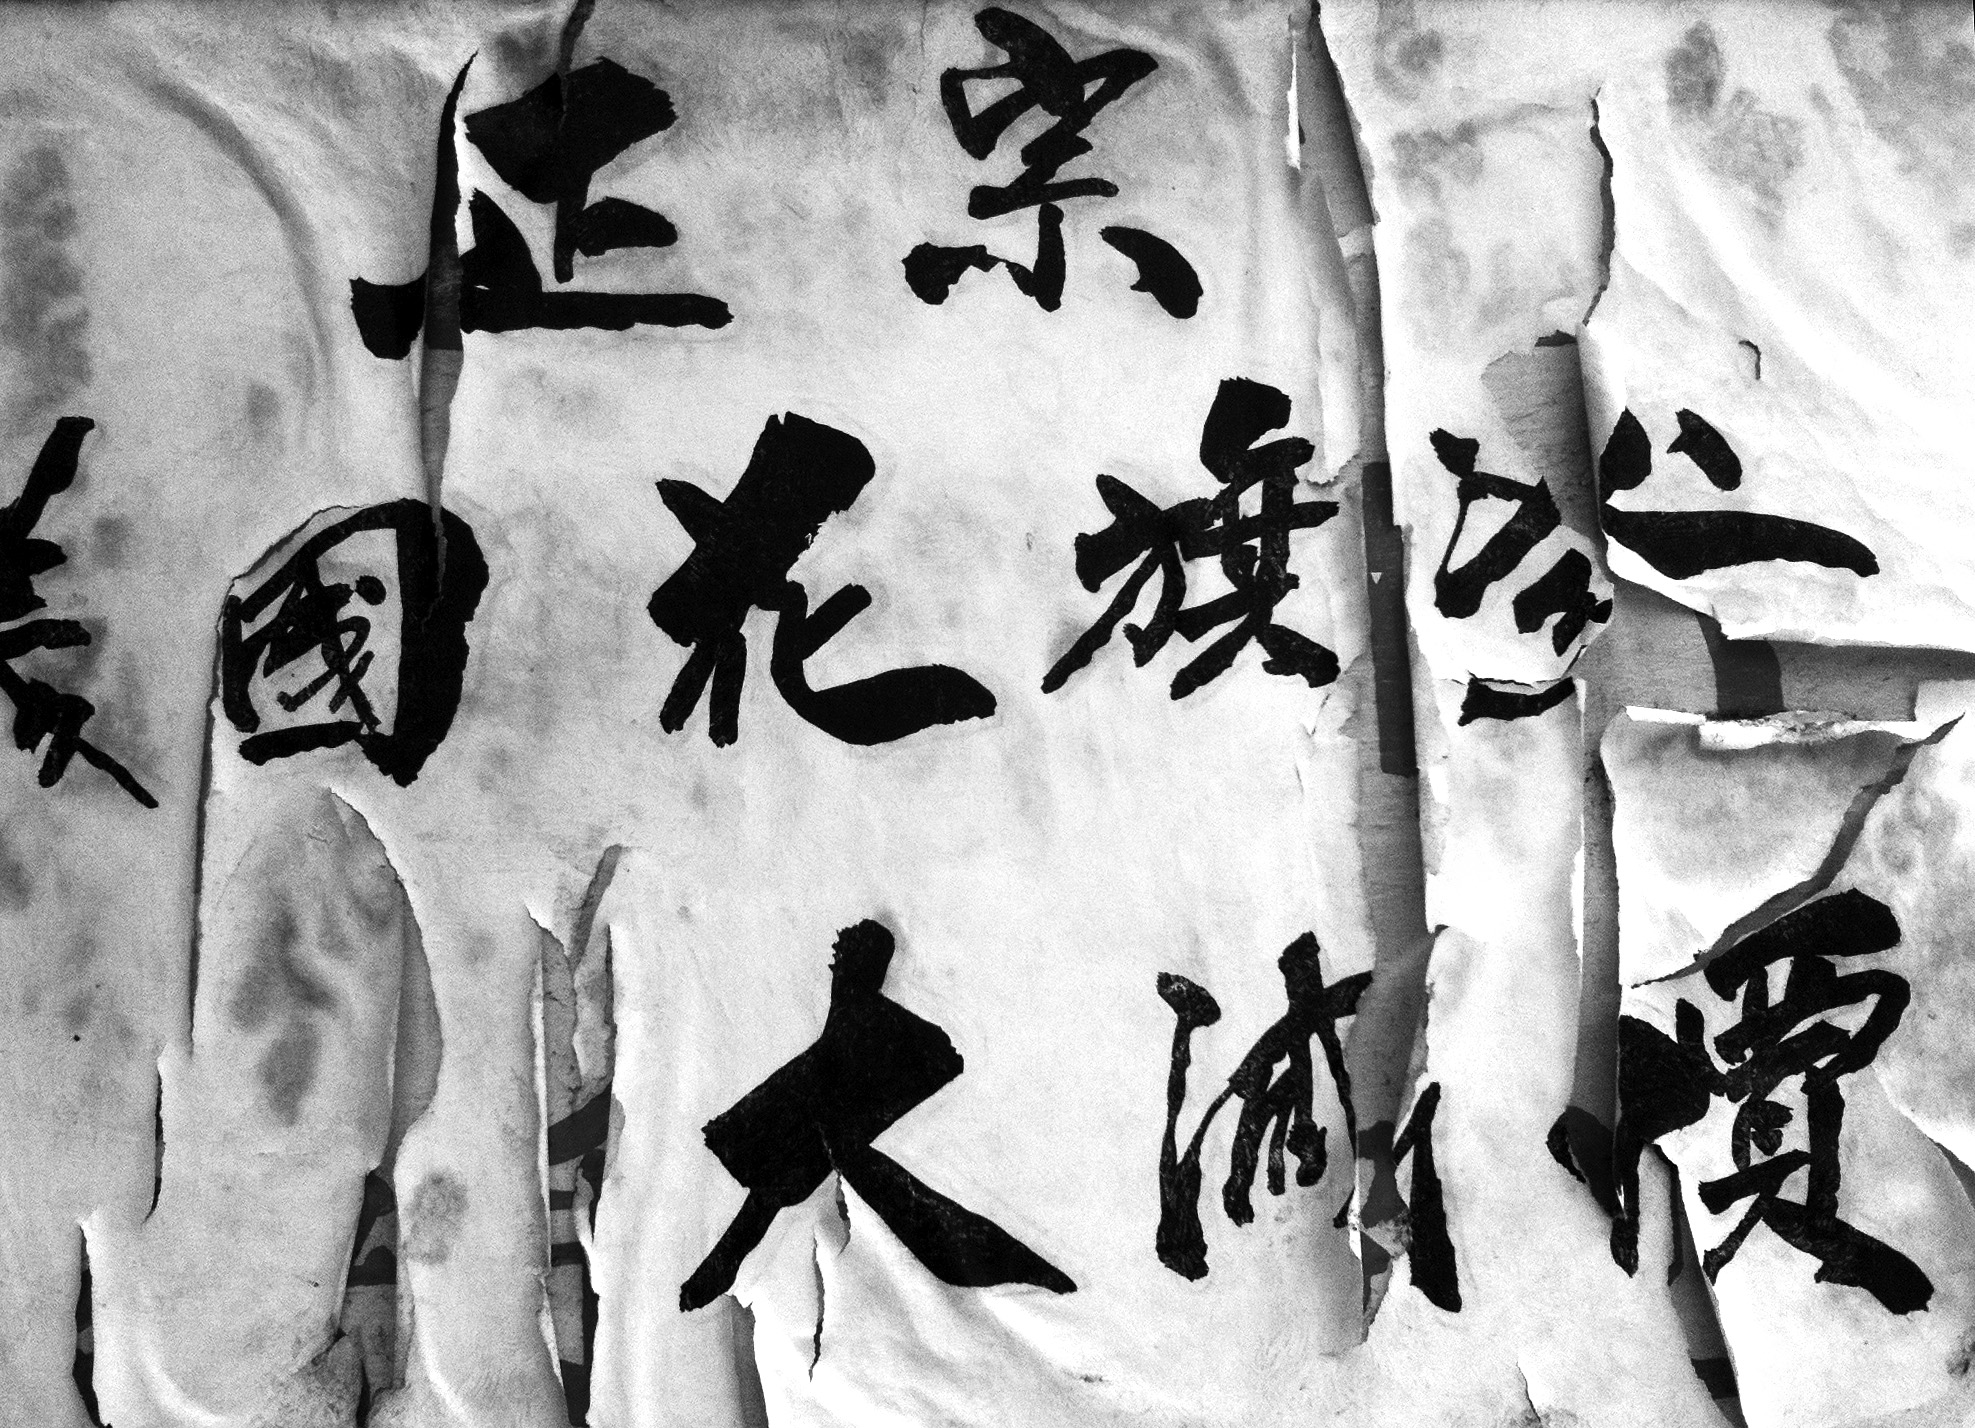 正宗
美國花旗參
大減價